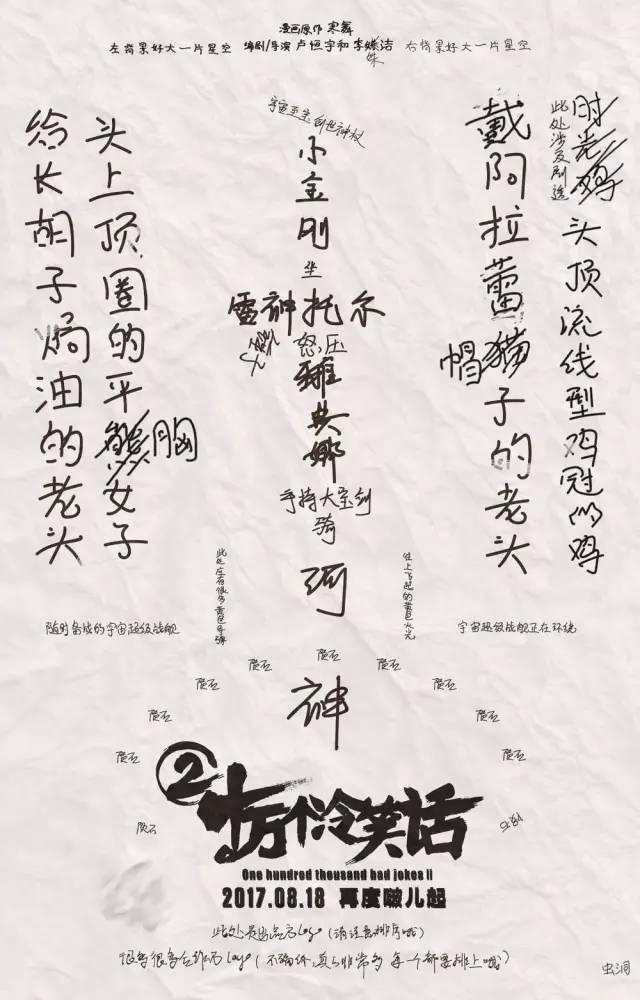 漫画原作 寒舞
左背景好大一片星空 编剧/导演 卢恒宇和李姝洁 右背景好大一片星空
宇宙至宝创世神杖
给长胡子焗油的老头
头上顶圈的平胸女子
小金刚
坐
雷神托尔
怒压
雅典娜
手持大宝剑
骑
河
神
戴阿拉蕾帽子的老头
猫
时光鸡
此处涉及剧透
头顶流线型鸡冠的鸡
此处应有很多黄色导弹
往上飞起的黄色火光
随时备战的宇宙超级战舰
宇宙超级战舰正在环绕
陨石
陨石 陨石
陨石 陨石
陨石 陨石
陨石 陨石
陨石
2
十万个冷笑话
One hundred thousand bad jokes II
2017.08.18 再度啵儿起
此处是出品方logo(请注意排序哦)
很多很多合作方logo(不骗你,真的非常多 每一个都要排上哦)
虫洞